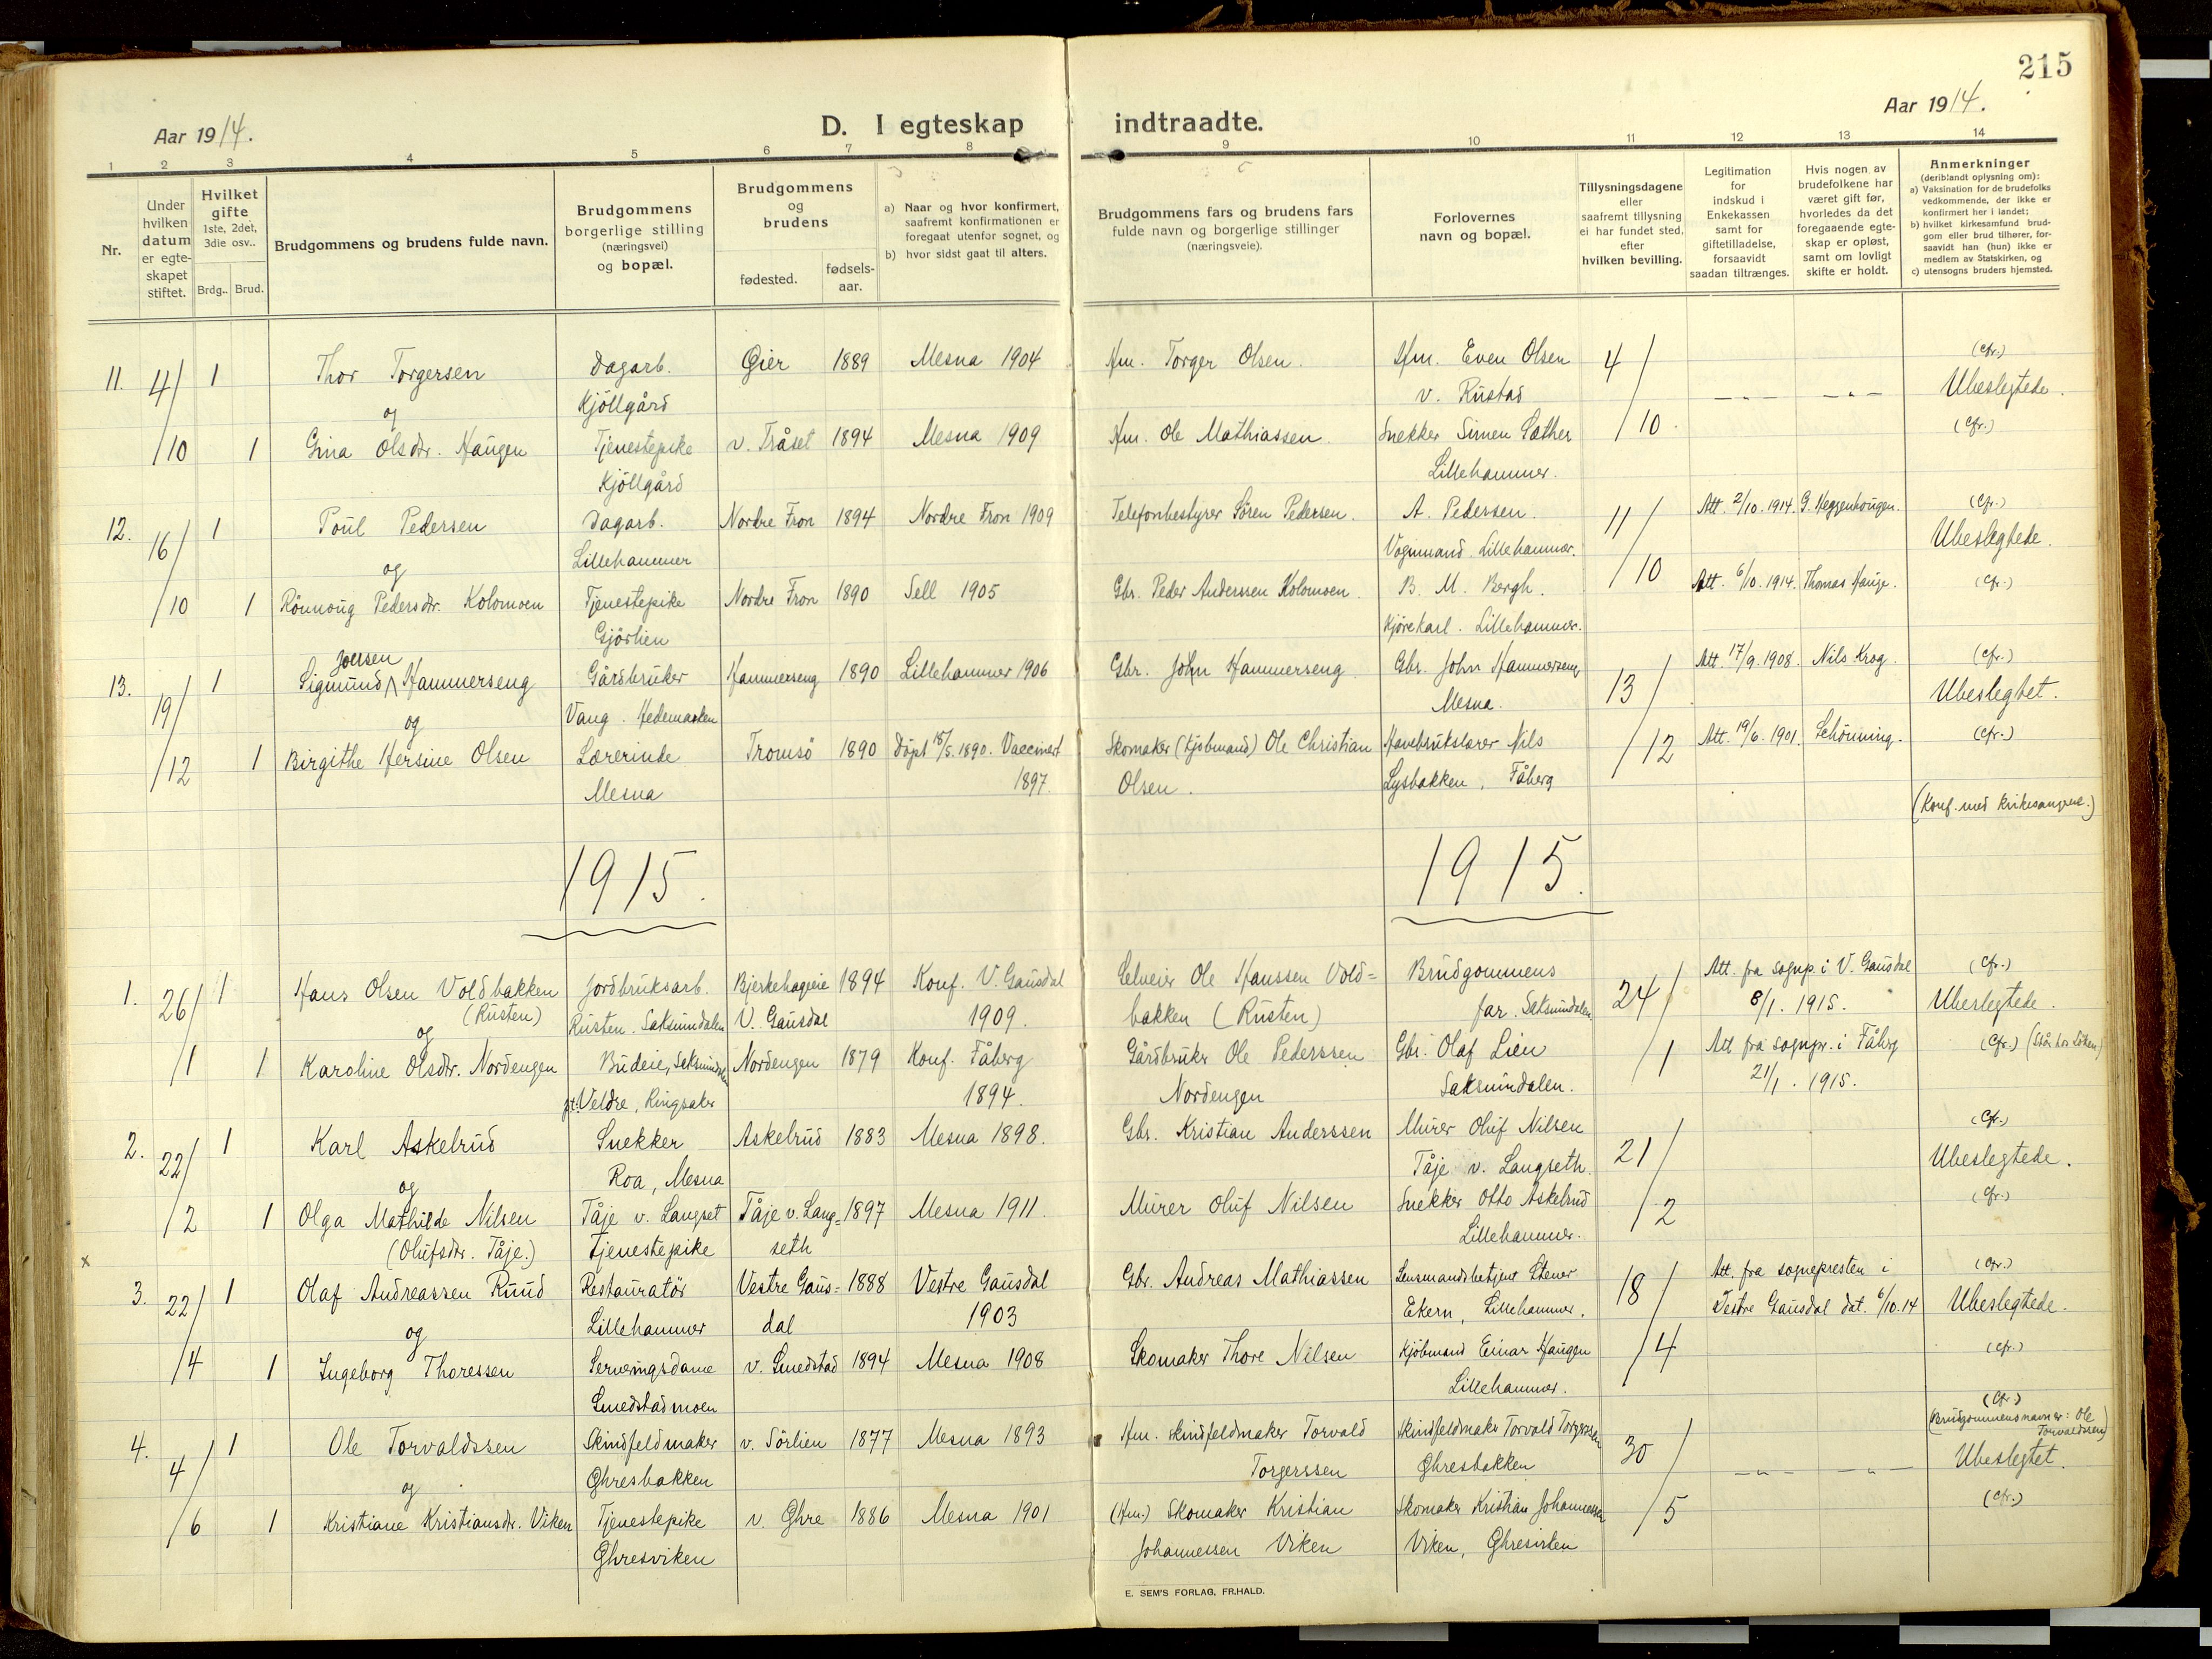 215
Aar 1914.
D. I egteskap indtraadte.
Aar 1914.
1 2 3 4 5 6 7 8 9 10 11 12 13 14
Nr.
Under hvilken datum er egte-skapet stiftet.
Hvilket gifte 1ste, 2det, 3die osv..
Brdg.. Brud.
Brudgommens og brudens fulde navn.
Brudgommens borgerlige stilling (næringsvei) og bopæl.
Brudgommens og brudens
fødested.
fødsels-aar.
a) Naar og hvor konfirmert, saafremt konfirmationen er foregaat utenfor sognet, og
b) hvor sidst gaat til alters.
Brudgommens fars og brudens fars fulde navn og borgerlige stillinger (næringsveie).
Forlovernes navn og bopæl.
Tillysningsdagene eller saafremt tillysning ei har fundet sted, efter hvilken bevilling.
Legitimation for indskud i Enkekassen samt for giftetilladelse, forsaavidt saadan tiltrænges.
Hvis nogen av brudefolkene har været gift før, hvorledes da det foregaaende egte-skap er opløst, samt om lovligt skifte er holdt.
Anmerkninger (deriblandt oplysning om):
a) Vaksination for de brudefolks vedkommende, der ikke er konfirmert her i landet;
b) hvilket kirkesamfund brud-gom eller brud tilhører, for-saavidt han (hun) ikke er medlem av Statskirken, og
c) utensogns bruders hjemsted.
11. 4/ 1 Thor Torgersen Dagarb. Øier 1889 Mesna 1904 Hm. Torger Olsen. Hm. Even Olsen 4/ (cfr.)
og Kjöllgård v. Rustad — " — — " — Ubeslegtede.
/10 1 Gina Olsdr. Haugen Tjenestepike v. Tråset 1894 Mesna 1909 Hm. Ole Mathiassen. Snekker Simen Sæther /10. (Cfr.)
Kjöllgård Lillehammer.
12. 16/ 1 Poul Pedersen Dagarb. Nordre Fron 1894 Nordre Fron 1909 Telefonbestyrer Sören Pedersen. A. Pedersen. 11/ Att. 2/10. 1914. G. Heggenhougen. (Cfr.)
og Lillehammer Vognmand. Lillehammer. Ubeslegtede.
/10 1 Rönnoug Pedersdr. Kolomoen Tjenestepike Nordre Fron 1890 Sell 1905 Gbr. Peder Anderssen Kolomoen. B. M. Bergh. /10 Att. 6/10. 1914. Thomas Hauge. (Cfr.)
Gjörlien Kjörekarl. Lillehammer.
Joensen
13. 19/ 1 Sigmund Hammerseng Gårdbruker Hammerseng 1890 Lillehammer 1906 Gbr. John Hammerseng Gbr. John Hammerseng 13/ Att. 17/9. 1908. Nils Krog. (Cfr.)
og Vang. Hedemarken Mesna. Ubeslegtet.
/12 1 Birgithe Hersine Olsen Lærerinde Tromsö 1890 Döpt 18/5. 1890. Vaccinert Skomaker (Kjöbmand) Ole Christian Havebrukslærer Nils /12 Att. 19/6. 1901. Schönning. (Cfr.)
Mesna 1897. Olsen. Lysbakken, Fåberg
(Konf. med kirkesangeren.)
1915. 1915.
1. 26/ 1 Hans Olsen Voldbakken Jordbruksarb. Bjerkehageie 1894 Konf. V. Gausdal Selveier Ole Hanssen Vold= Brudgommens 24/ Att. fra sognp. i V. Gausdal (Cfr.)
(Rusten) Rusten. Saksumdalen V. Gausdal 1909. bakken (Rusten) far. Saksumdalen 8/1. 1915. Ubeslegtede.
og
/1 1 Karoline Olsdr. Nordengen Budeie, Saksumdalen Nordengen 1879 Konf. Fåberg Gårdbruker Ole Pederssen Gbr. Olaf Lien /1 Att fra sognpr. i Fåberg (Cfr.)
pt. Veldre, Ringsaker 1894. Nordengen Saksumdalen. 21/1. 1915.
2. 22/ 1 Karl Askelrud Snekker Askelrud 1883 Mesna 1898. Gbr. Kristian Anderssen Murer Oluf Nilsen 21/ (Cfr.)
og Roa, Mesna Tåje v. Langseth. Ubeslegtede.
/2 1 Olga Mathilde Nilsen Tåje v. Langset Tåje v. Lang= 1897 Mesna 1911. Murer Oluf Nilsen Snekker Otto Askelrud /2 (Cfr.)
x (Olufsdr. Tåje.) Tjenestepike seth Lillehammer.
3. 22/ 1 Olaf Andreassen Ruud Restauratör Vestre Gaus= 1888 Vestre Gausdal Gbr. Andreas Mathiassen Lensmandsbetjent Stener 18/ Att. fra sognepresten i (Cfr.)
og Lillehammer dal 1903 Ekern, Lillehammer. Vestre Gausdal dat. 6/10. 14 Ubeslegtede.
/4 1 Ingeborg Thoressen Serveringsdame v. Smedstad 1894 Mesna 1908 Skomaker Thore Nilsen Kjöbmand Einar Haugen /4 (cfr.)
Smedstadmoen Lillehammer.
(Cfr.)
(Brudgommens navn er: Ole Torvaldssen)
4. 4/ 1 Ole Torvaldssen Skindfeldmaker v. Sörlien 1877 Mesna 1893 Hm. skindfeldmaker Torvald Skindfeldmaker Torvald Torgerssen 30/ Ubeslegtet.
og Ghresbakken Torgerssen Ghresbakken — " — — " —
/6 1 Kristiane Kristiansdr. Viken Tjenestepike v. Ghre 1886 Mesna 1901 (Hm.) Skomaker Kristian Skomaker Kristian Johannessen /5 (Cfr.)
Ghresviken Johannessen Viken Viken, Ghresviken
E. SEM'S FORLAG, FR.HALD.